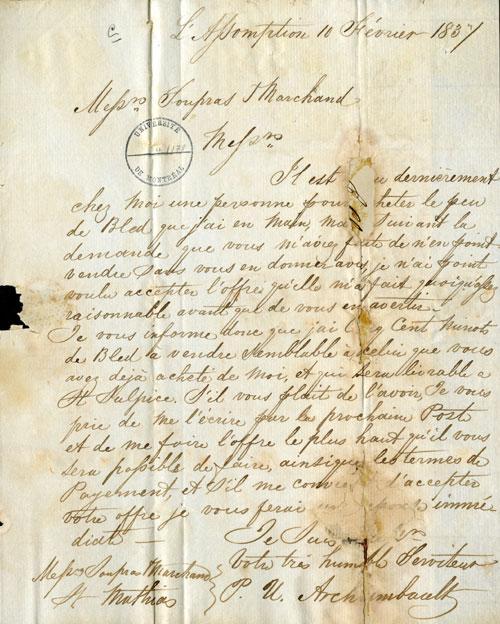 L'Assomption 10 Février 1837
Messrs Soupras & Marchand
Messrs
UNIVERSITÉ
DE MONTRÉAL
Il est venu dernièrement
chez moi une personne pour acheter le peu
de Bled que j'ai en main mais suivant la
demande que vous m'avez faite de n'en point
vendre sans vous en donner avis je n'ai point
voulu accepter l'offre qu'elle m'a fait quoique
raisonnable avant que de vous en avertir.
Je vous informe donc que j'ai Cinq Cent Minots
de Bled à vendre semblable à celui que vous
avez déjà acheté de moi, et qui sera livrable a
St Sulpice. S'il vous plait de l'avoir Je vous
prie de me l'écrire par la prochain Post
et de me faire l'offre le plus haut qu'il vous
sera possible de faire, ainsi que les termes de
Payement, et s'il me convient d'accepter
votre offre je vous ferai immé
diate —
Je Suis
Votre très humble Serviteur
P. U. Archambault
Messrs Soupras & Marchand
St Mathias